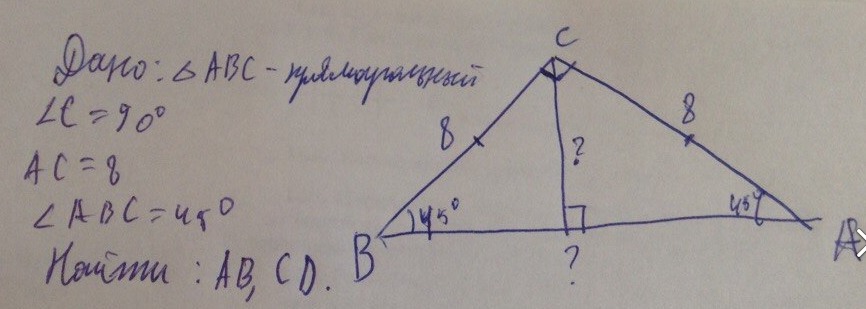 Дано: △ABC - прямоугольный
∠C = 90°
AC = 8
∠ABC = 45°
Найти: AB, CD.
C
8
8
?
45°
45°
B
?
A